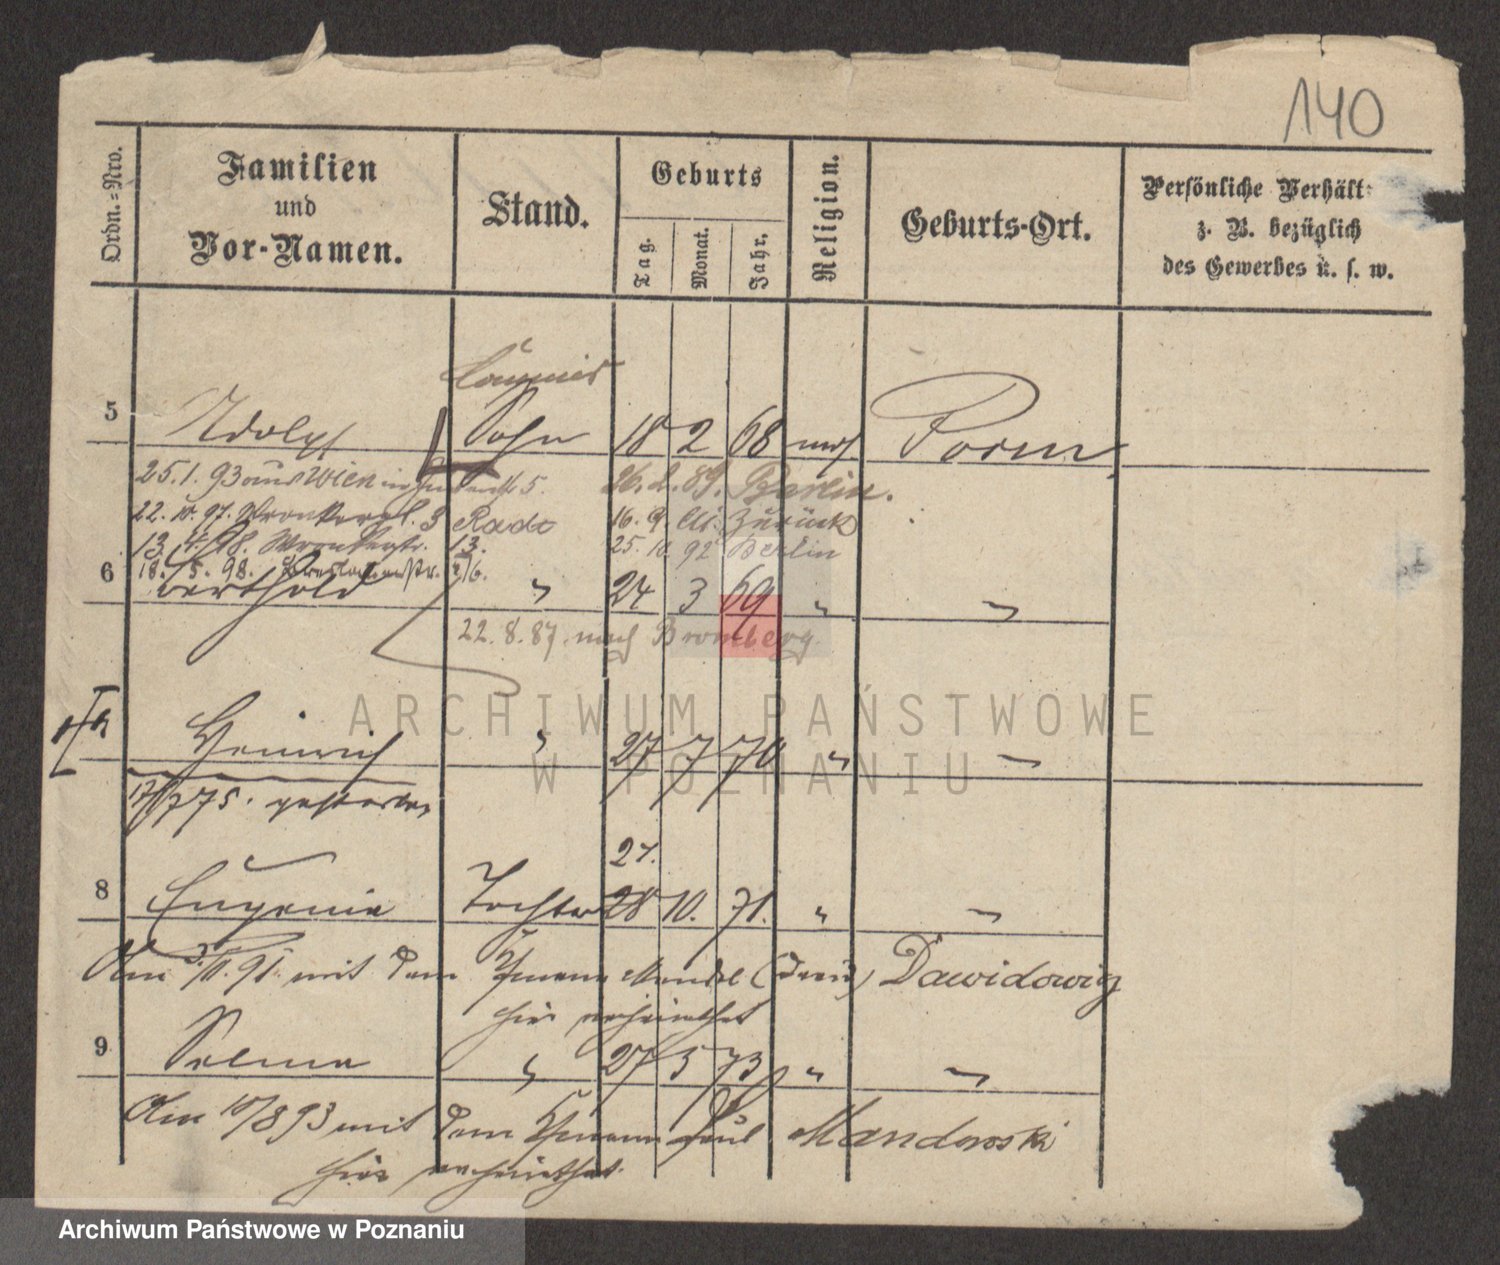 140
Ordn.=Nro. Familien und Vor-Namen. Stand. Geburts Tag. Monat. Jahr. Religion. Geburts-Ort. Persönliche Verhält- z. B. bezüglich des Gewerbes u. s. w.
Commis
5 Adolph Sohn 18 2 68 mos Posen
25.1.93 aus Wien in 5. 26.2.89. Berlin.
22.10.97. Wronkerpl. 3 Rado 16.9. Zurück
13.4.98. Wronkerstr. 13. 25.10.92 Berlin
18.5.98. Breslauerstr. 16.
6 Berthold " 24 3 69 " "
22.8.87. nach Bromberg.
Heinrich " 27 7 70 " "
17/7 75. gestorben
27.
8 Eugenie Tochter 28 10. 71. " "
Am 91. mit dem Kfmann Mendel Dawidowig
hier verheirathet
9 Selma " 27 5 73 " "
Am 10/8 93 mit dem Kfmann Paul Mandowski
hier verheirathet.
ARCHIWUM PAŃSTWOWE
W POZNANIU
Archiwum Państwowe w Poznaniu